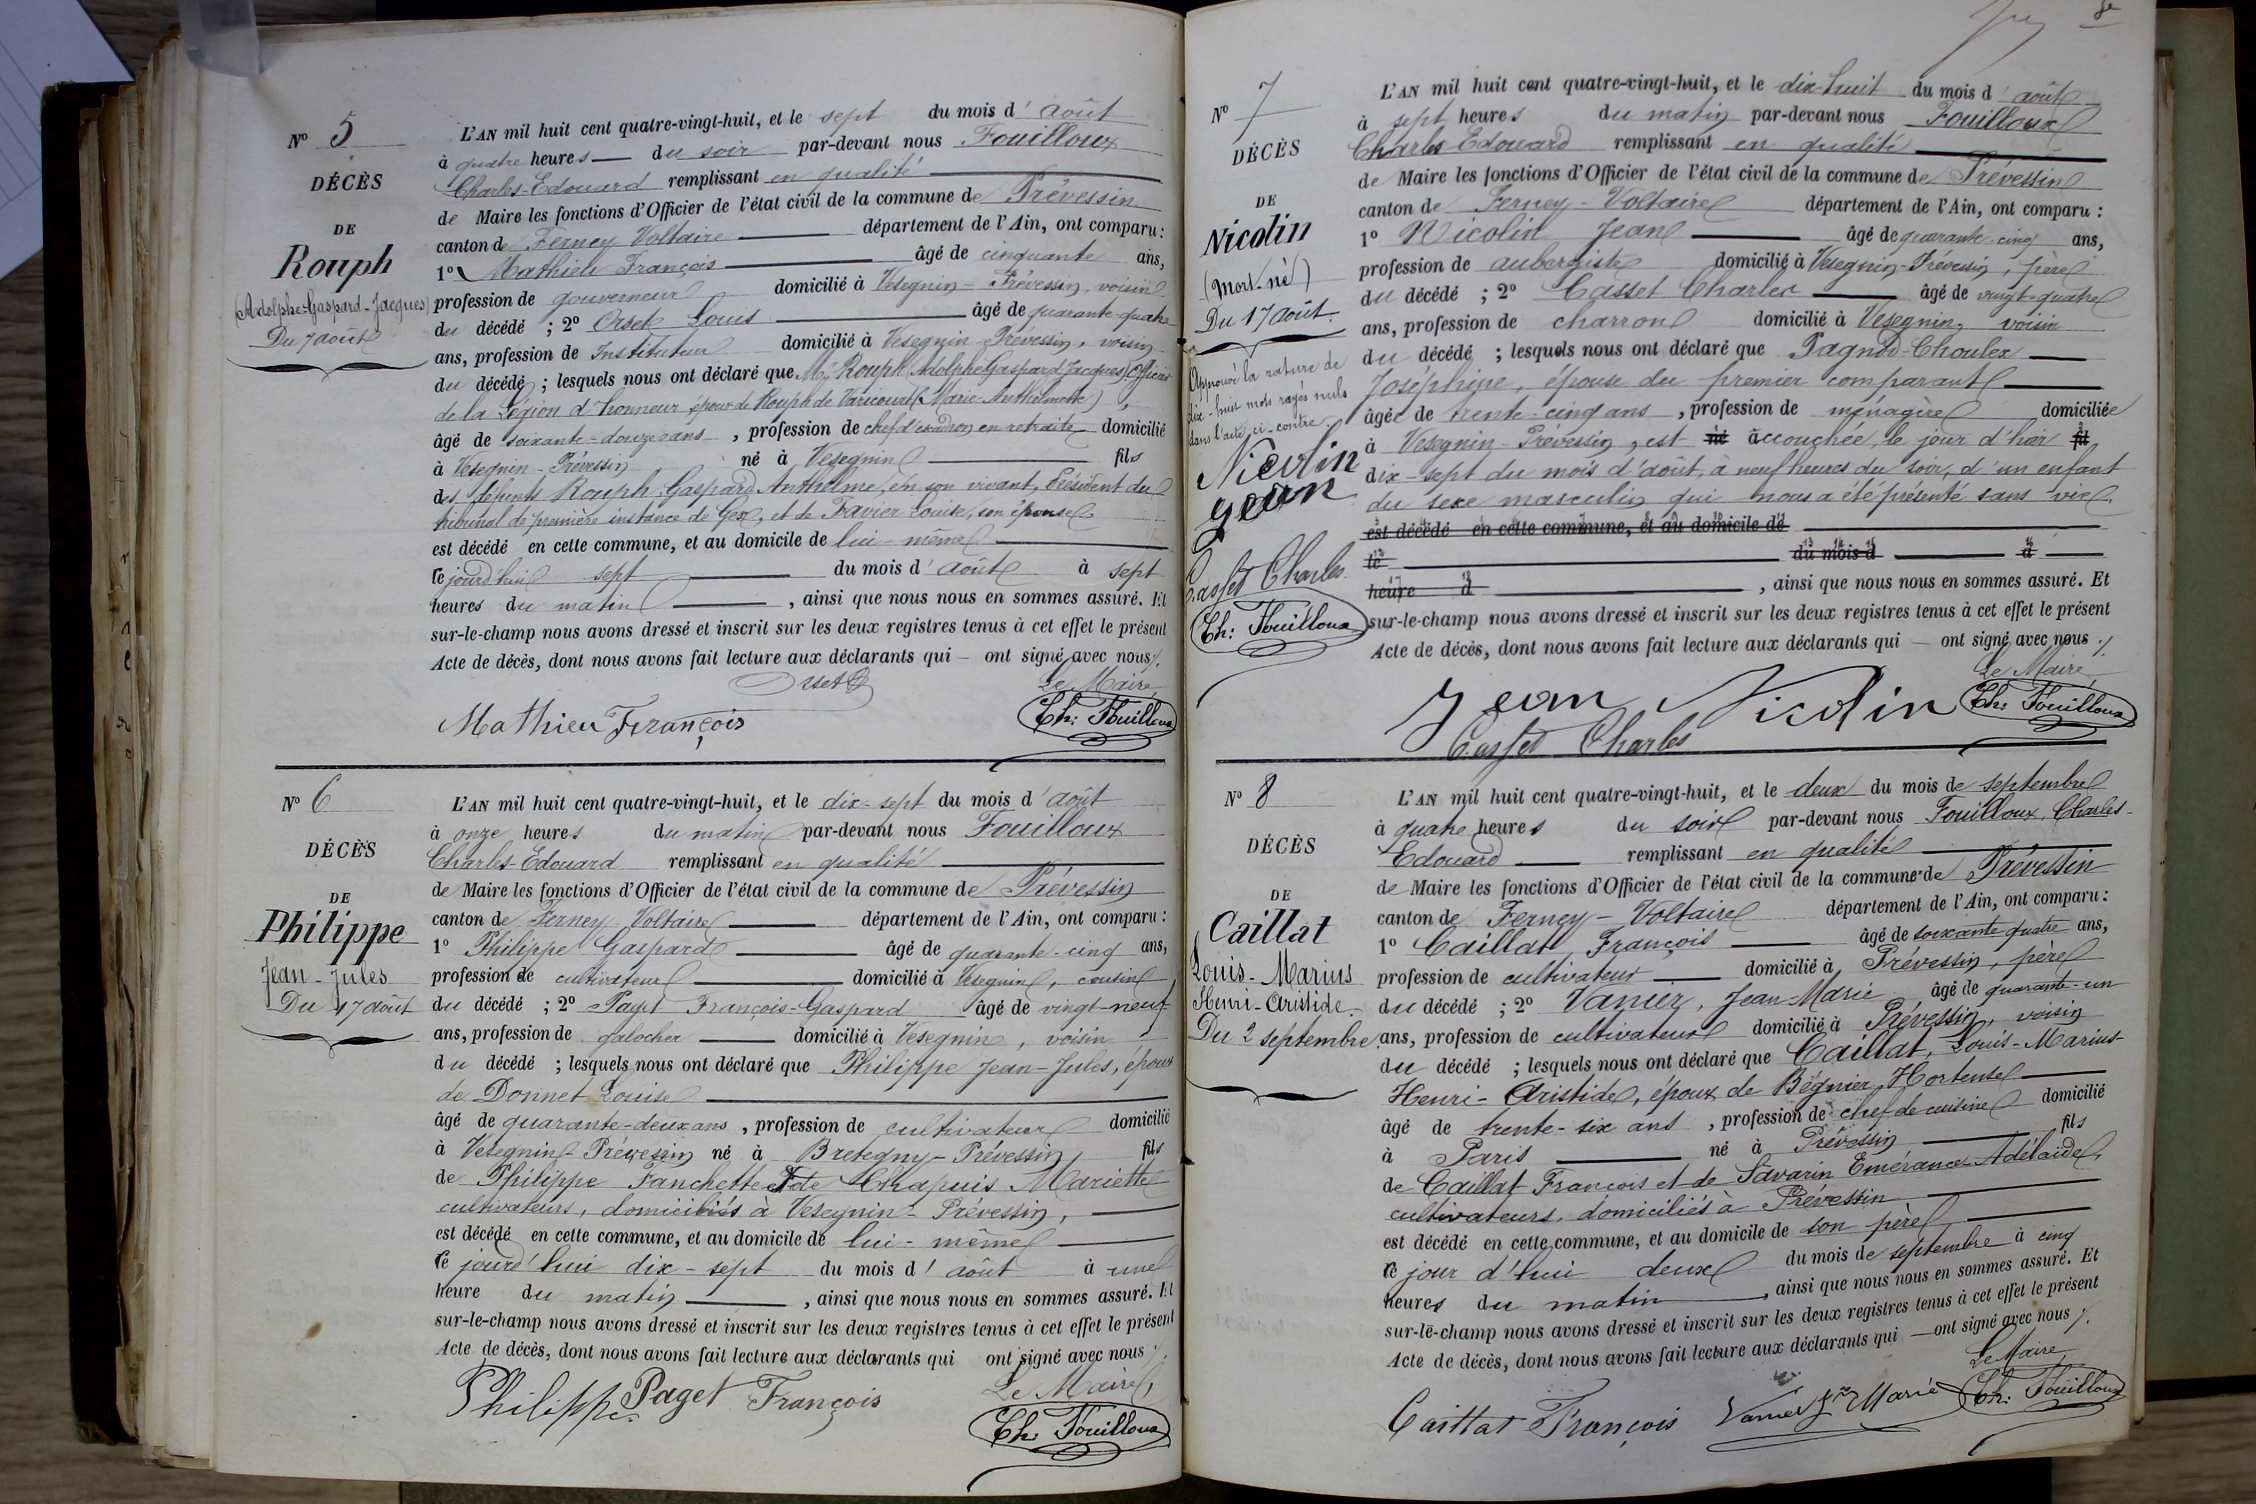 N° 5
DÉCÈS
DE
Rouph
(Adolphe-Gaspard-Jacques)
Du 7 août
L'AN mil huit cent quatre-vingt-huit, et le sept du mois d'août
à quatre heures du soir par-devant nous Fouilloux
Charles-Edouard remplissant en qualité
de Maire les fonctions d'Officier de l'état civil de la commune de Prévessin
canton de Ferney Voltaire département de l'Ain, ont comparu :
1° Mathieu François âgé de cinquante ans,
profession de gouverneur domicilié à Vesegnin-Prévessin, voisin
du décédé ; 2° Orset Louis âgé de quarante-quatre
ans, profession de Instituteur domicilié à Vesegnin-Prévessin, voisin
du décédé ; lesquels nous ont déclaré que Mr Rouph (Adolphe Gaspard Jacques) Officier
de la Légion d'honneur époux de Rouph de Varicourt (Marie-Anthelmette),
âgé de soixante-douze ans, profession de chef d'escadron en retraite domicilié
à Vesegnin-Prévessin né à Vesegnin fils
des défunts Rouph Gaspard Anthelme, en son vivant, Président du
tribunal de première instance de Gex, et de Favier Louise, son épouse
est décédé en cette commune, et au domicile de lui-même
le jourd'hui sept du mois d'août à sept
heures du matin, ainsi que nous nous en sommes assuré. Et
sur-le-champ nous avons dressé et inscrit sur les deux registres tenus à cet effet le présent
Acte de décès, dont nous avons fait lecture aux déclarants qui — ont signé avec nous ./.
Orset Le Maire
Mathieu François Ch: Fouilloux
N° 6
DÉCÈS
DE
Philippe
Jean-Jules
Du 17 août
L'AN mil huit cent quatre-vingt-huit, et le dix-sept du mois d'août
à onze heures du matin par-devant nous Fouilloux
Charles-Edouard remplissant en qualité
de Maire les fonctions d'Officier de l'état civil de la commune de Prévessin
canton de Ferney-Voltaire département de l'Ain, ont comparu :
1° Philippe Gaspard âgé de quarante-cinq ans,
profession de cultivateur domicilié à Vesegnin, cousin
du décédé ; 2° Paget François-Gaspard âgé de vingt-neuf
ans, profession de galocher domicilié à Vesegnin, voisin
du décédé ; lesquels nous ont déclaré que Philippe Jean-Jules, époux
de Donnet Louise
âgé de quarante-deux ans, profession de cultivateur domicilié
à Vesegnin-Prévessin né à Bretegny-Prévessin fils
de Philippe Fanchette et de Chapuis Mariette
cultivateurs, domiciliés à Vésegnin-Prévessin,
est décédé en cette commune, et au domicile de lui-même
le jourd'hui dix-sept du mois d'août à une
heure du matin, ainsi que nous nous en sommes assuré. Et
sur-le-champ nous avons dressé et inscrit sur les deux registres tenus à cet effet le présent
Acte de décès, dont nous avons fait lecture aux déclarants qui ont signé avec nous ./.
Le Maire,
Philippe Paget François Ch: Fouilloux
N° 7
DÉCÈS
DE
Nicolin
(Mort-né)
Du 17 août.
Approuvé la rature de
dix-huit mots rayés nuls
dans l'acte ci-contre.
Nicolin
Jean
Casset Charles
Ch: Fouilloux
L'AN mil huit cent quatre-vingt-huit, et le dix-huit du mois d'août
à sept heures du matin par-devant nous Fouilloux
Charles-Edouard remplissant en qualité
de Maire les fonctions d'Officier de l'état civil de la commune de Prévessin
canton de Ferney-Voltaire département de l'Ain, ont comparu :
1° Nicolin Jean âgé de quarante-cinq ans,
profession de aubergiste domicilié à Vesegnin-Prévessin, père
du décédé ; 2° Casset Charles âgé de vingt-quatre
ans, profession de charron domicilié à Vesegnin, voisin
du décédé ; lesquels nous ont déclaré que Pagnod-Choulex
Joséphine, épouse du premier comparant
âgée de trente-cinq ans, profession de ménagère domiciliée
à Vesegnin-Prévessin, est né accouchée, le jour d'hier fil
dix-sept du mois d'août, à neuf heures du soir, d'un enfant
du sexe masculin qui nous a été présenté sans vie
est décédé en cette commune, et au domicile de
le du mois d à
heure d, ainsi que nous nous en sommes assuré. Et
sur-le-champ nous avons dressé et inscrit sur les deux registres tenus à cet effet le présent
Acte de décès, dont nous avons fait lecture aux déclarants qui — ont signé avec nous ./.
Le Maire,
Jean Nicolin Ch: Fouilloux
Casset Charles
N° 8
DÉCÈS
DE
Caillat
Louis-Marius
Henri-Aristide.
Du 2 septembre
L'AN mil huit cent quatre-vingt-huit, et le deux du mois de septembre
à quatre heures du soir par-devant nous Fouilloux, Charles-
Edouard remplissant en qualité
de Maire les fonctions d'Officier de l'état civil de la commune de Prévessin
canton de Ferney-Voltaire département de l'Ain, ont comparu :
1° Caillat François âgé de soixante-quatre ans,
profession de cultivateur domicilié à Prévessin, père
du décédé ; 2° Vanier, Jean-Marie âgé de quarante-un
ans, profession de cultivateur domicilié à Prévessin, voisin
du décédé ; lesquels nous ont déclaré que Caillat, Louis-Marius-
Henri-Aristide, époux de Bégnier Hortense
âgé de trente-six ans, profession de chef de cuisine domicilié
à Paris né à Prévessin fils
de Caillat François et de Savarin Emérance-Adélaïde,
cultivateurs, domiciliés à Prévessin
est décédé en cette commune, et au domicile de son père
le jour d'hui deux du mois de septembre à cinq
heures du matin, ainsi que nous nous en sommes assuré. Et
sur-le-champ nous avons dressé et inscrit sur les deux registres tenus à cet effet le présent
Acte de décès, dont nous avons fait lecture aux déclarants qui — ont signé avec nous ./.
Le Maire,
Caillat François Vanier Jn Marie Ch: Fouilloux